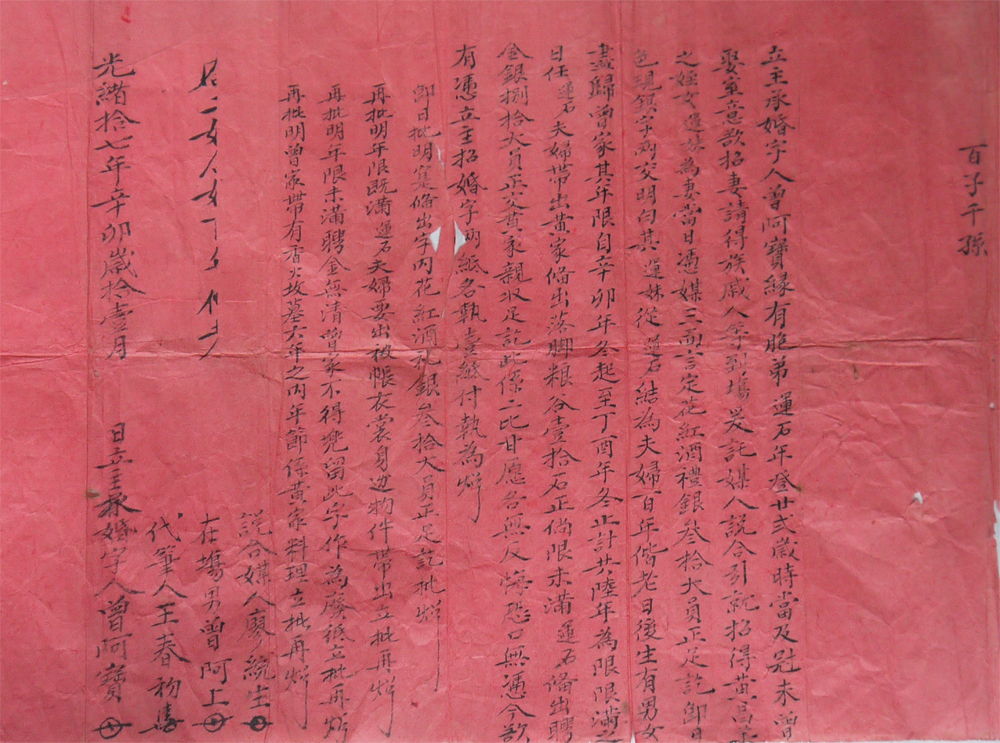 百子千孫
立主承婚字人曾阿寶緣有胞弟運石年登廿弍歲時當及冠未曾
娶室意欲招妻請得族戚人等到塲哭託媒人說合引就招得黃昌
之姪女運妹為妻當日憑媒三面言定花紅酒禮銀叁拾大員正足訖卽日
色現銀字兩交明白其運妹從運石結為夫婦百年偕老日後生有男女
盡歸曾家其年限自辛卯年冬起至丁酉年冬止計共陸年為限限滿之
日任運石夫婦帶出黃家俻出落脚粮谷壹拾石正倘限未滿運石俻出聘
金銀捌拾大員正交黃家親收足訖此係二比甘愿各無反悔恐口無憑今欲
有憑立主招婚字兩紙各執壹紙付執為炤
卽日批明寔俻出字內花紅酒礼銀叁拾大員正足訖批炤
再批明年限既滿運石夫婦要出被帳衣裳身边物件帶出立批再炤
再批明年限未滿聘金無清曾家不得兜留此字作為廢紙立批再炤
再批明曾家帶有香火坟墓六年之內年節係黃家料理立批再炤
說合媒人廖統生
在塲男曾阿上
代筆人王春初
光緒拾七年辛卯歲拾壹月 日立主承婚字人曾阿寶